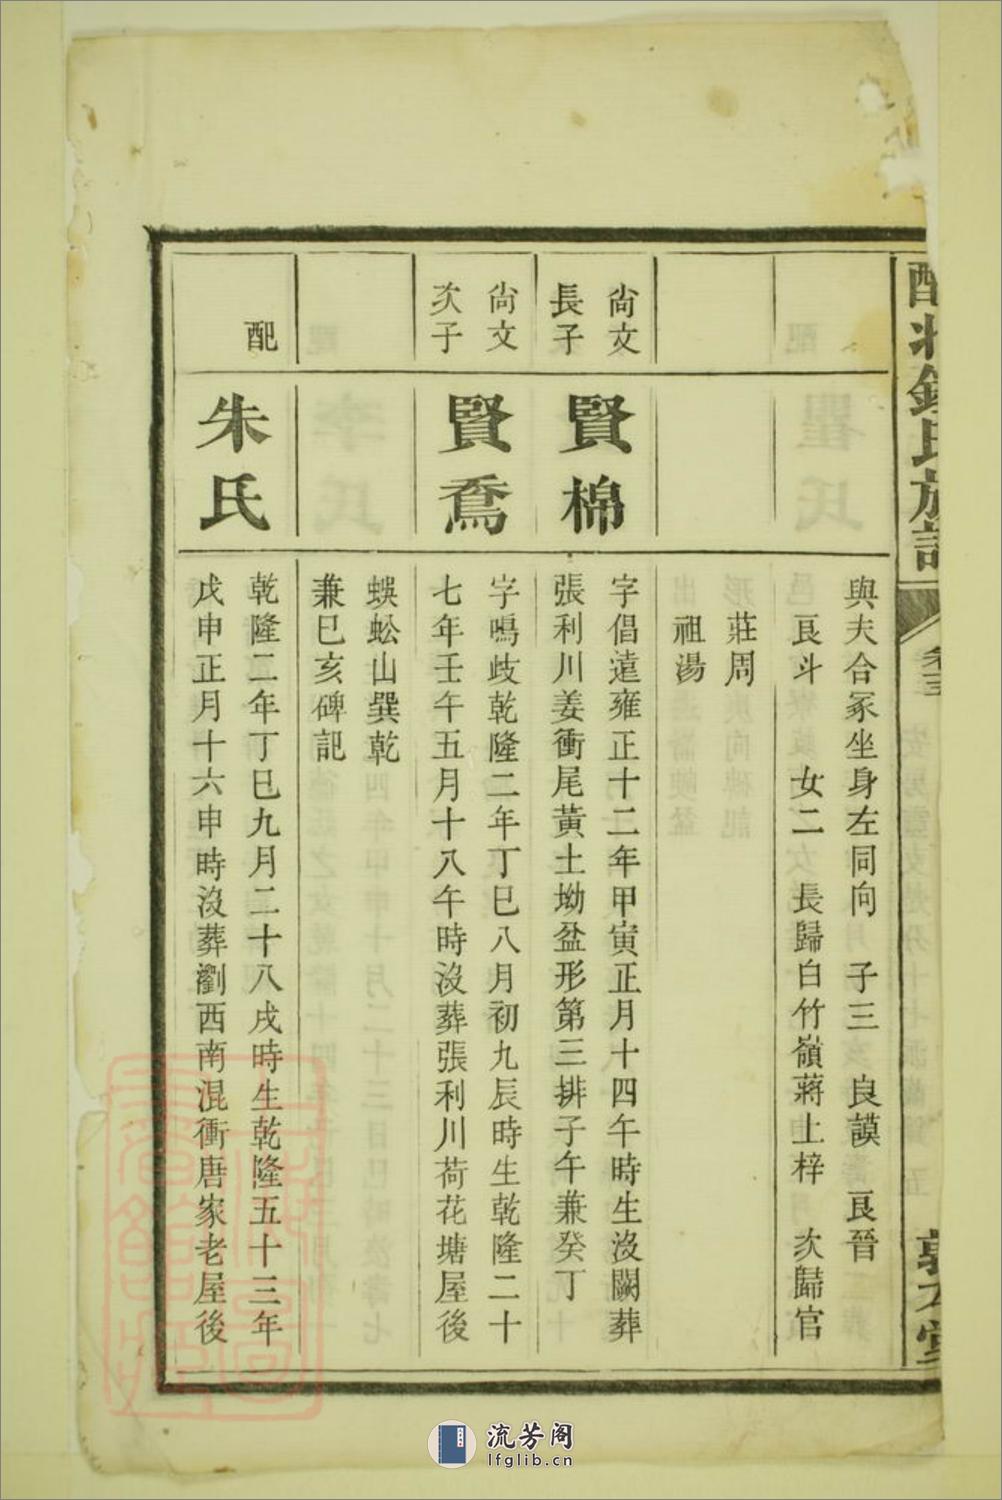 氏族譜
卷三
與夫合冢坐身左同向 子三 良謨 良晉
良斗 女二 長歸白竹嶺蔣上梓 次歸官
莊周
祖湯
尚文
長子
賢棉
字倡遠雍正十二年甲寅正月十四午時生沒闕葬
張利川姜衝尾黃土坳盆形第三排子午兼癸丁
尚文
次子
賢喬
字鳴歧乾隆二年丁巳八月初九辰時生乾隆二十
七年壬午五月十八午時沒葬張利川荷花塘屋後
蜈蚣山巽乾
兼巳亥碑記
配
朱氏
乾隆二年丁巳九月二十八戌時生乾隆五十三年
戊申正月十六申時沒葬瀏西南混衝唐家老屋後
流芳阁
lfglib.cn